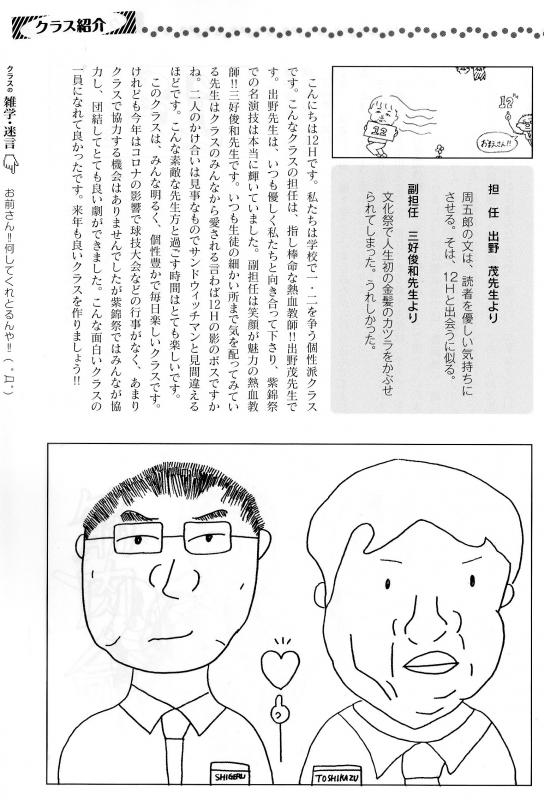 クラス紹介
12
お前さん!!
12
担　任　出野　茂先生より
周五郎の文は、読者を優しい気持ちに
させる。そは、12Hと出会うに似る。
副担任　三好俊和先生より
文化祭で人生初の金髪のカツラをかぶせ
られてしまった。うれしかった。
こんにちは12Hです。私たちは学校で一・二を争う個性派クラス
です。こんなクラスの担任は、指し棒命な熱血教師!!出野茂先生で
す。出野先生は、いつも優しく私たちと向き合って下さり、紫錦祭
での名演技は本当に輝いていました。副担任は笑顔が魅力の熱血教
師!!三好俊和先生です。いつも生徒の細かい所まで気を配ってみてい
る先生はクラスのみんなから愛される言わば12Hの影のボスですか
ね。二人のかけ合いは見事なものでサンドウィッチマンと見間違える
ほどです。こんな素敵な先生方と過ごす時間はとても楽しいです。
このクラスは、みんな明るく、個性豊かで毎日楽しいクラスです。
けれども今年はコロナの影響で球技大会などの行事がなく、あまり
クラスで協力する機会はありませんでしたが紫錦祭ではみんなが協
力し、団結してとても良い劇ができました。こんな面白いクラスの
一員になれて良かったです。来年も良いクラスを作りましょう!!
クラスの雑学・迷言　お前さん!!何してくれとるんや!!(゜Д゜)
SHIGERU
TOSHIKAZU